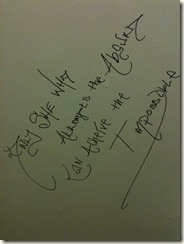 Only She Who
Attempts the Absurd
Can Acheive the
Impossible